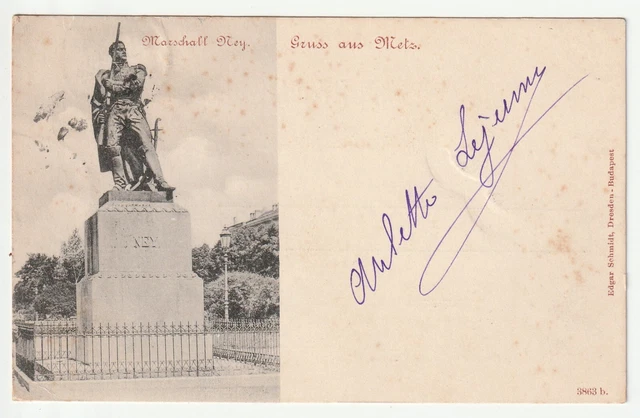 Marschall Ney.
Gruss aus Metz.
NEY
Aulette Lejeune
Edgar Schmidt, Dresden-Budapest
3863 b.